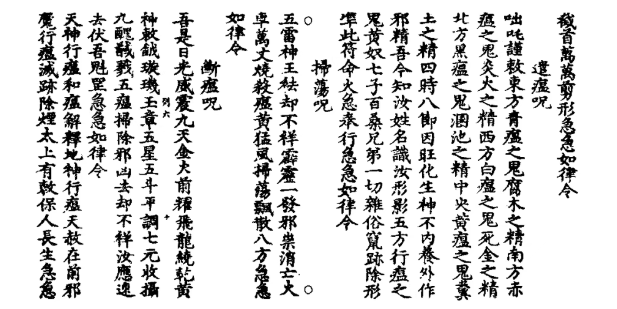 穢首萬萬剪形急急如律令
遣瘟咒
咄吒謹敕東方青瘟之鬼腐木之精南方赤
瘟之鬼炎火之精西方白瘟之鬼死金之精
北方黑瘟之鬼溷池之精中央黃瘟之鬼糞
土之精四時八節因旺化生神不內養外作
邪精吾今知汝姓名識汝形影五方行瘟之
鬼黃奴七子百桑兄弟一切雜俗竄跡除形
準此符命火急奉行急急如律令
掃蕩咒
五雷神王祛却不祥霹靂一發邪祟消亡火
車萬丈燒殺瘟黃猛風掃蕩飄散八方急急
如律令
斷瘟咒
吾是日光威震九天金火前耀飛龍繞乾黃
神敕飯璇璣玉章五星五斗平調七元收攝
九醜截戮五瘟掃除邪凶去却不祥汝應速
去伏吾魁罡急急如律令
天神行瘟和瘟解釋地神行瘟天赦在前邪
魔行瘟滅跡除煙太上有敕保人長生急急